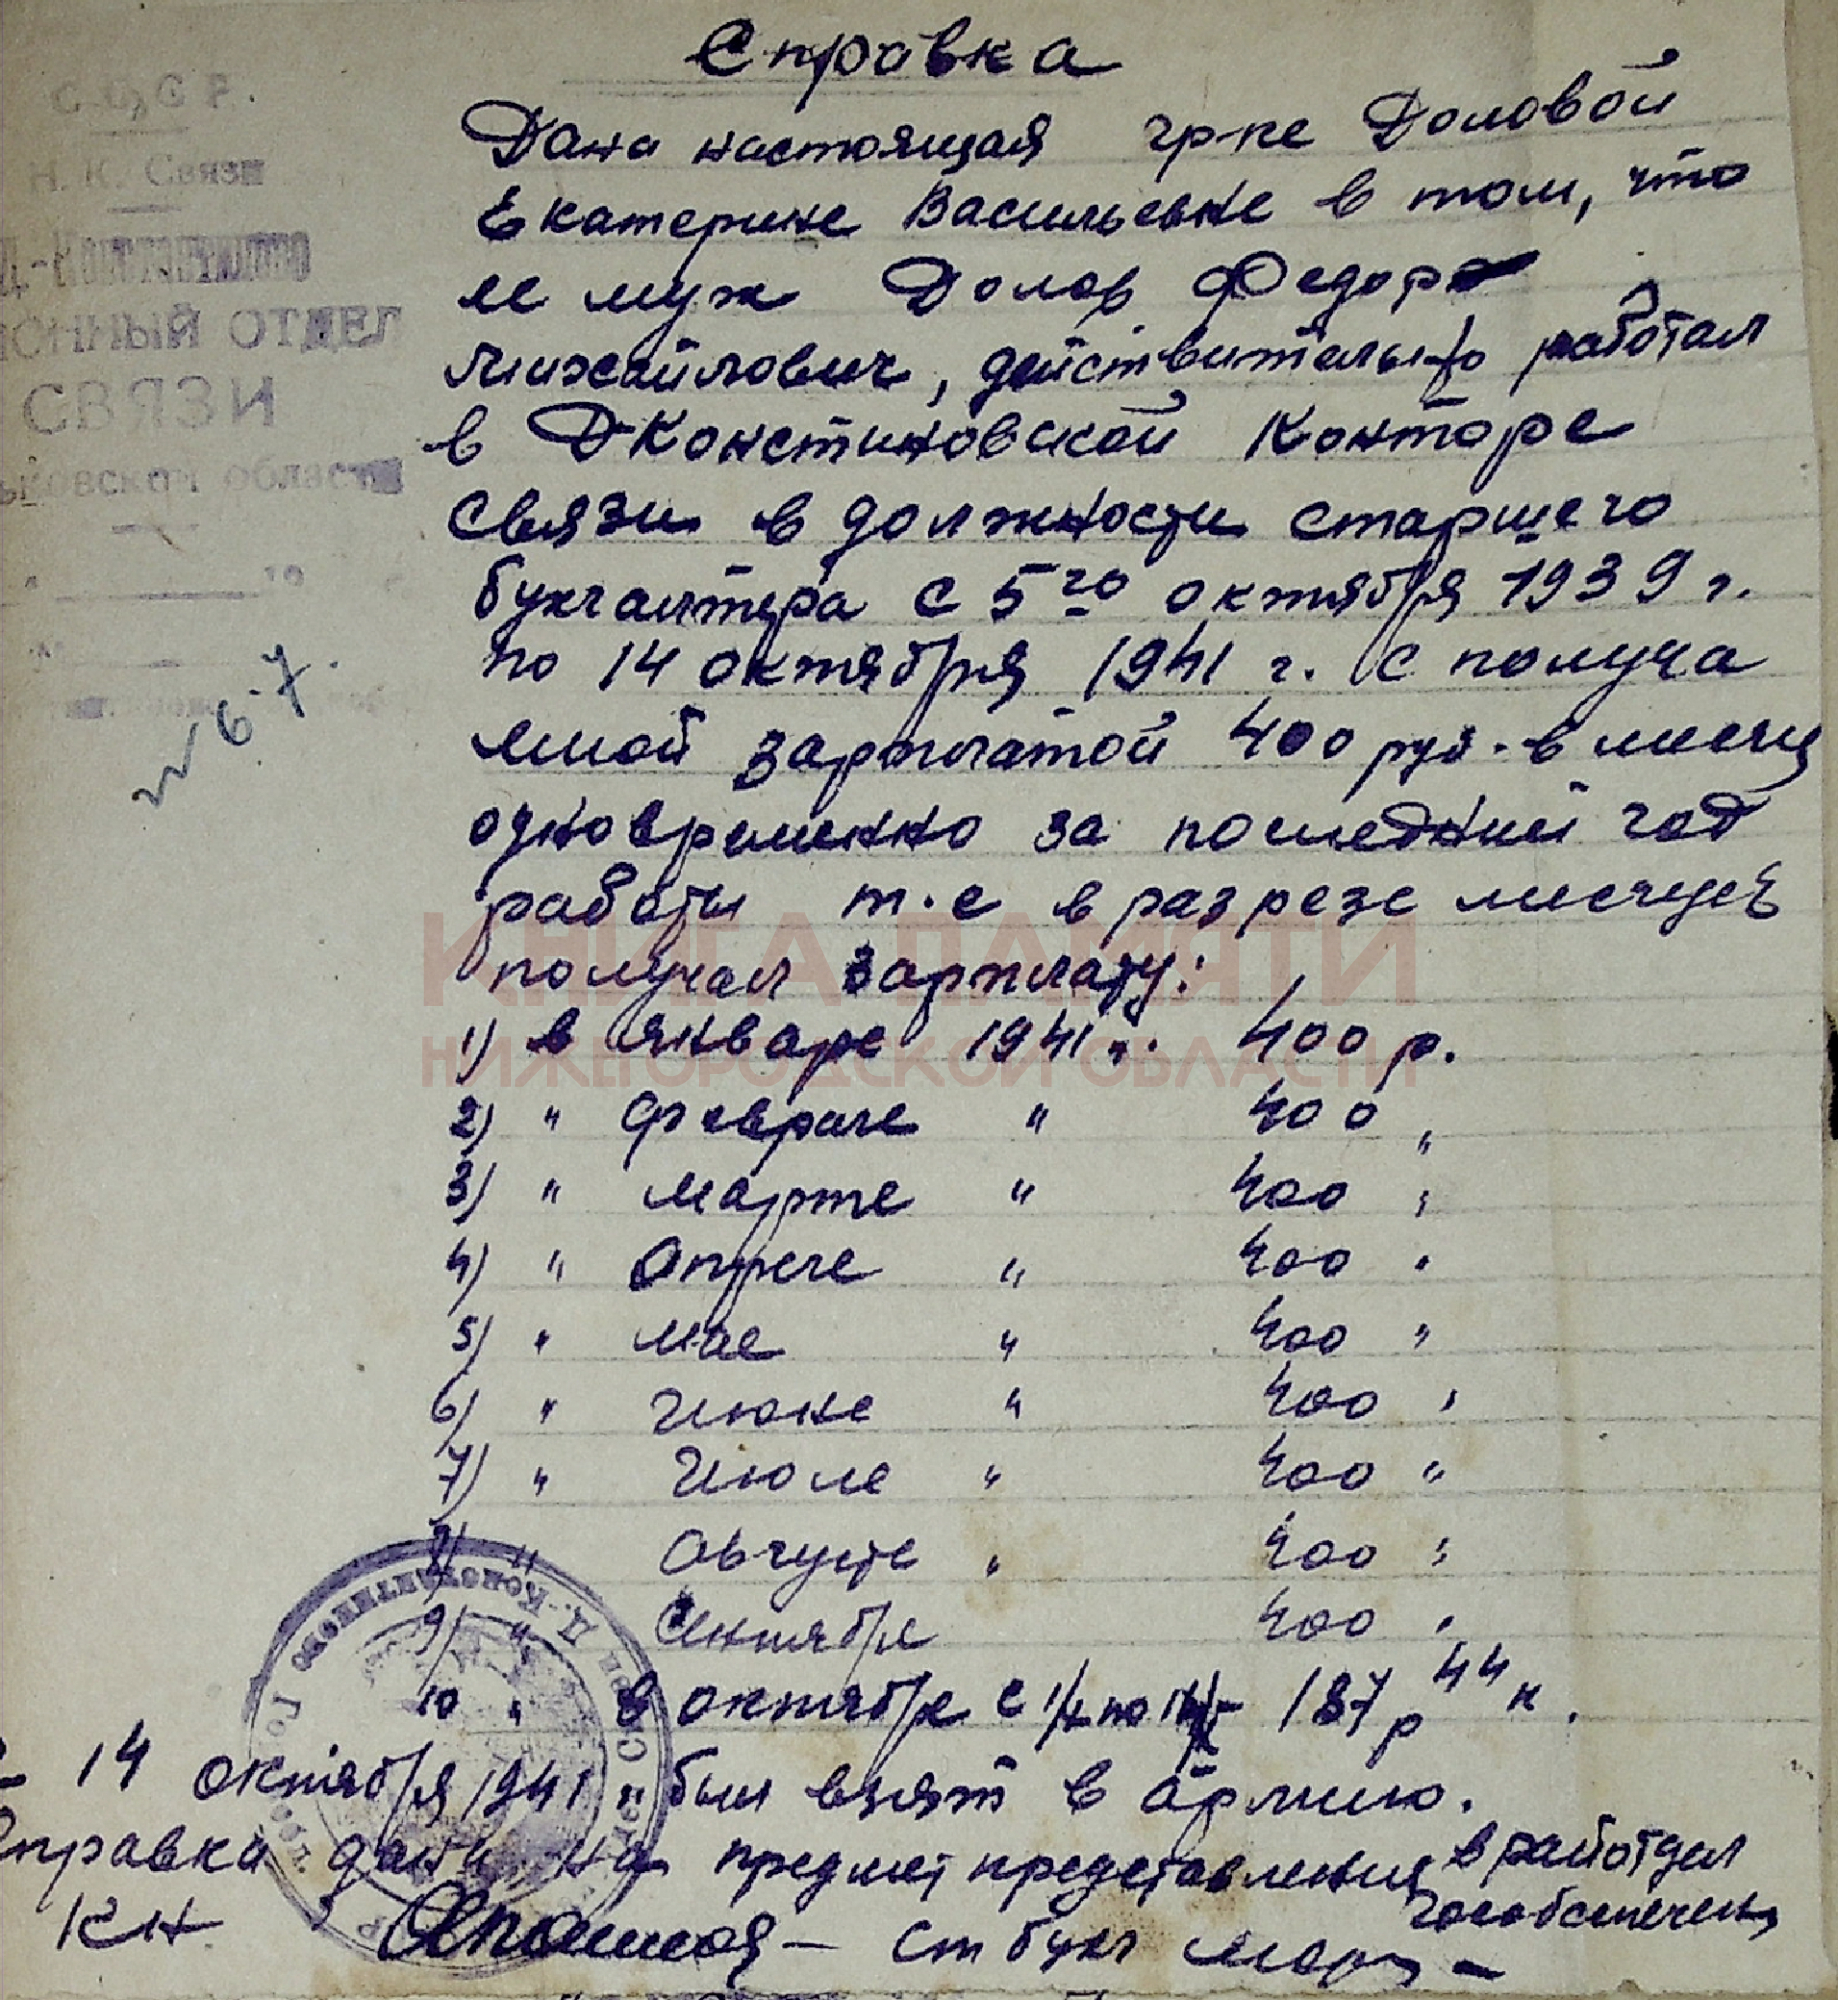 Справка
С.С.С.Р.
Н.К. Связи
Д-Константиново
ОННЫЙ ОТДЕЛ
СВЯЗИ
ьковской области
19
№ 6-7.
Дана настоящая гр-ке Доловой
Екатерине Васильевне в том, что
ее муж Долов Федор
Михайлович, действительно работал
в ДКонстиновской Конторе
Связи в должности старшего
бухгалтера с 5го октября 1939 г.
по 14 октября 1941 г. с получа
емой зарплатой 400 руб. в месяц
одновременно за последний год
работы т.е в разрезе месяцев
получал зарплату:
1) в январе 1941 г. 400 р.
2) " феврале " 400 "
3) " марте " 400 "
4) " Апреле " 400 "
5) " мае " 400 "
6) " Июне " 400 "
7) " Июле " 400 "
8) " Августе " 400 "
9) " Сентябре 400 "
10 " в октябре с 1/X по 14/X 187 р 44 к.
14 октября 1941 г был взят в армию.
Справка дана на предмет представления в райотдел
гособеспечения
ст бухг
КНИГА ПАМЯТИ
НИЖЕГОРОДСКОЙ ОБЛАСТИ